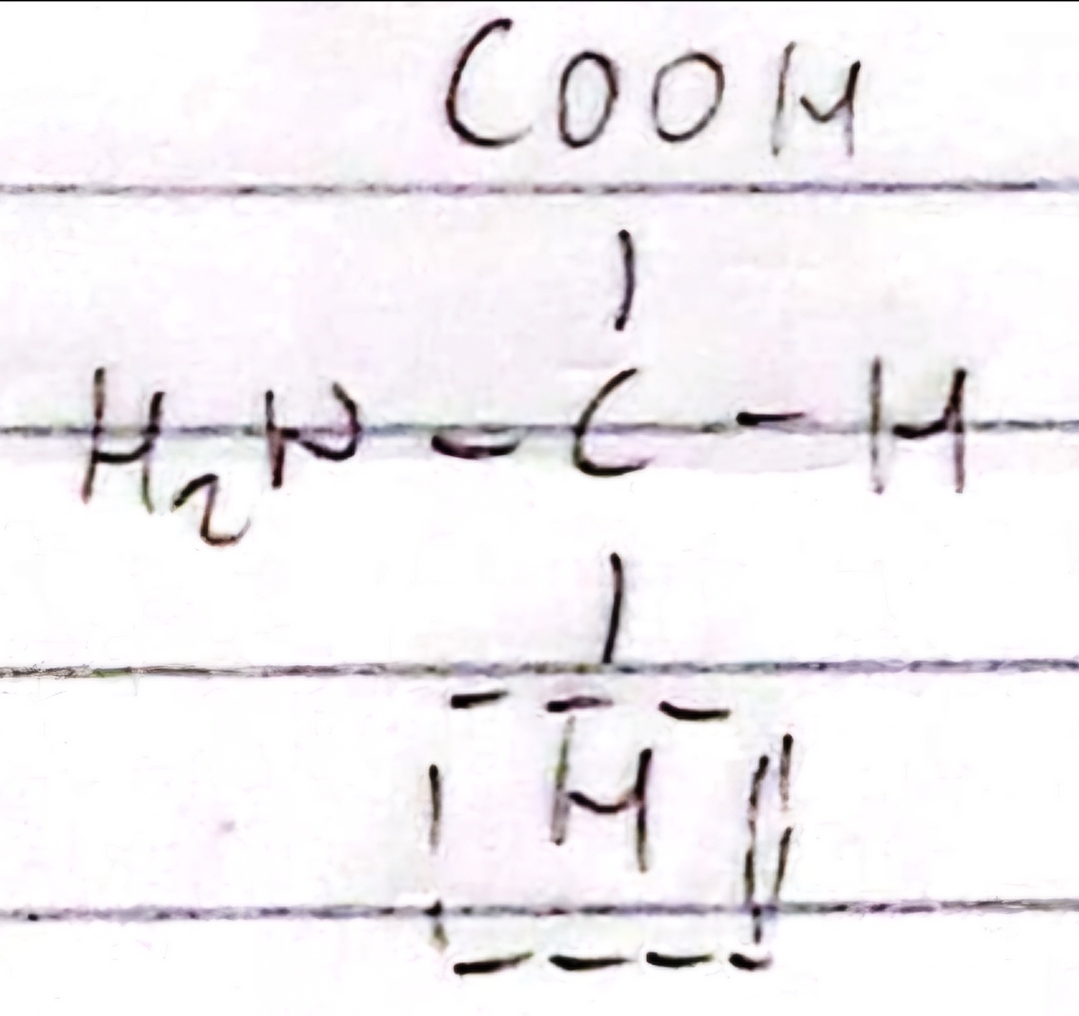 COOH
|
H₂N - C - H
|
H